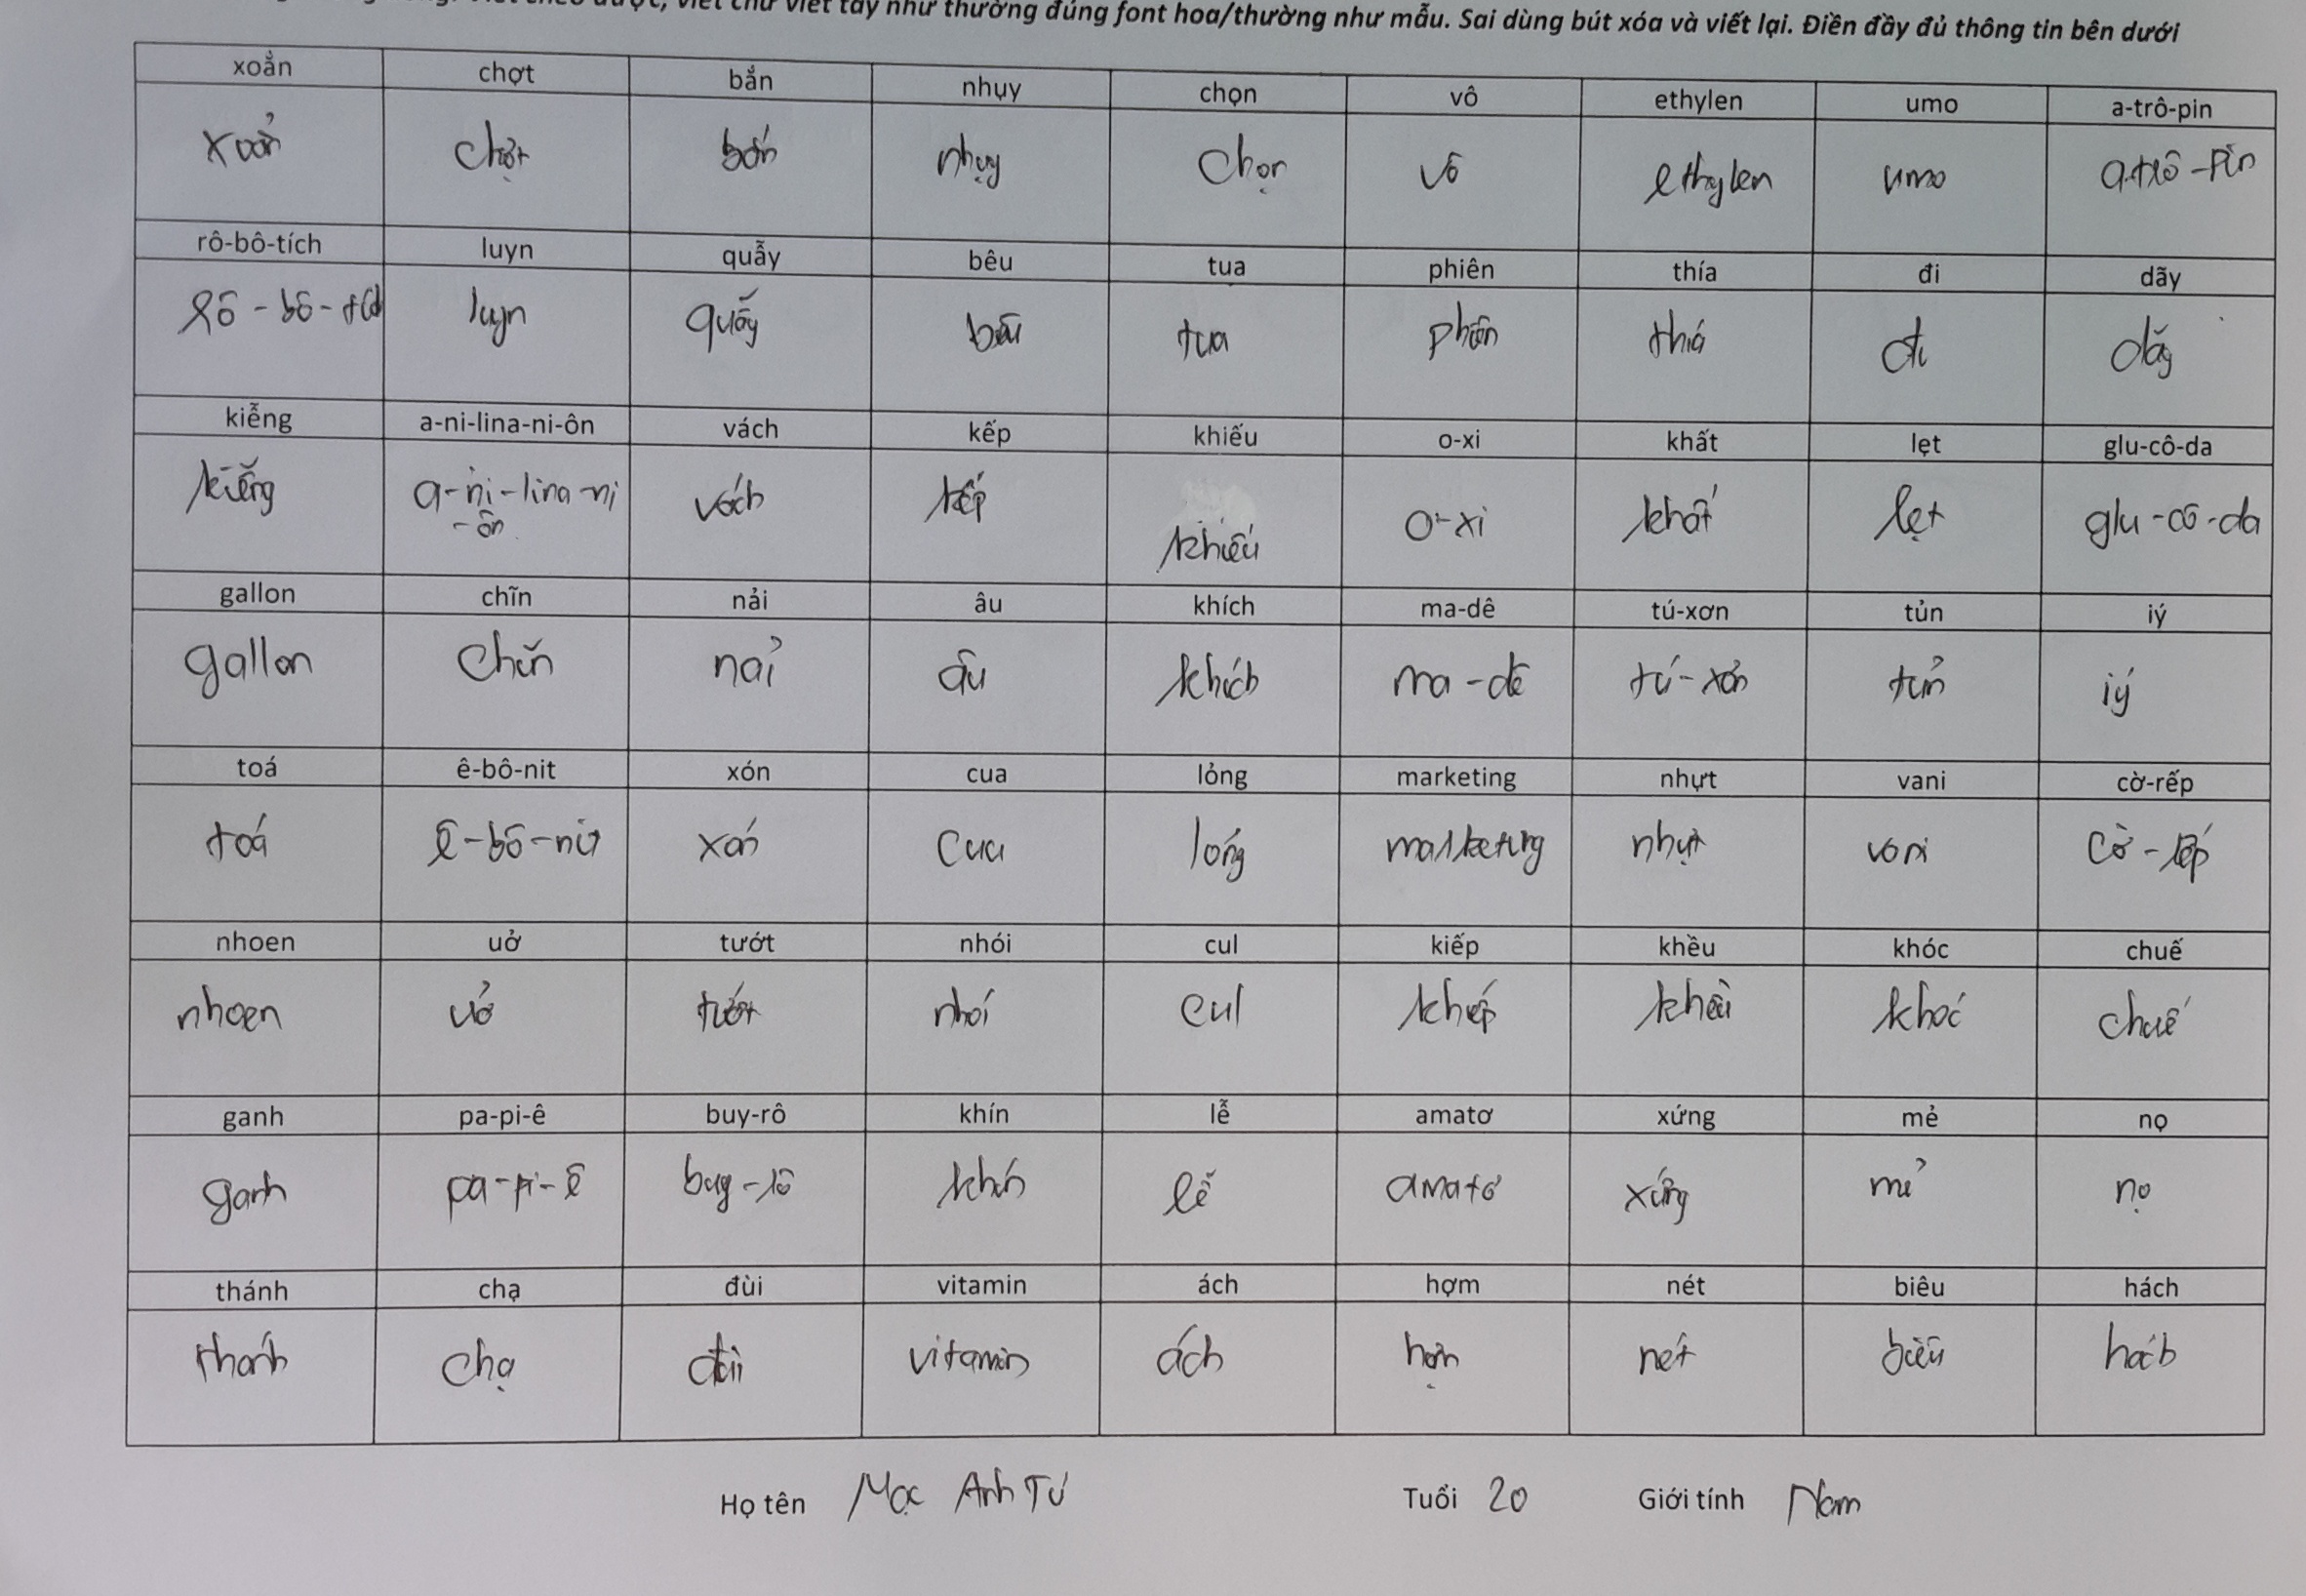 viết chữ viết tay như thường đúng font hoa/thường như mẫu. Sai dùng bút xóa và viết lại. Điền đầy đủ thông tin bên dưới
xoẳn chợt bắn nhụy chọn vô ethylen umo a-trô-pin
xoẳn chợt bắn nhụy chọn vô ethylen umo a-trô-pin
rô-bô-tích luyn quẫy bêu tua phiên thía đi dãy
rô-bô-tích luyn quẫy bêu tua phiên thía đi dãy
kiễng a-ni-lina-ni-ôn vách kếp khiếu o-xi khất lẹt glu-cô-da
kiễng a-ni-lina-ni vách kếp khiếu o-xi khất lẹt glu-cô-da
-ôn
gallon chĩn nải âu khích ma-dê tú-xơn tủn iý
gallon chĩn nải âu khích ma-dê tú-xơn tủn iý
toá ê-bô-nit xón cua lỏng marketing nhựt vani cờ-rếp
toá ê-bô-nit xón cua lóng marketing nhựt vani cờ-rếp
nhoen uở tướt nhói cul kiếp khều khóc chuế
nhoen uở tướt nhói cul khiếp khều khóc chuế
ganh pa-pi-ê buy-rô khín lễ amatơ xứng mẻ nọ
ganh pa-pi-ê buy-rô khín lễ amatơ xứng mẻ nọ
thánh chạ đùi vitamin ách hợm nét biêu hách
thánh chạ đùi vitamin ách hợm nét biêu hách
Họ tên Mạc Anh Tú Tuổi 20 Giới tính Nam